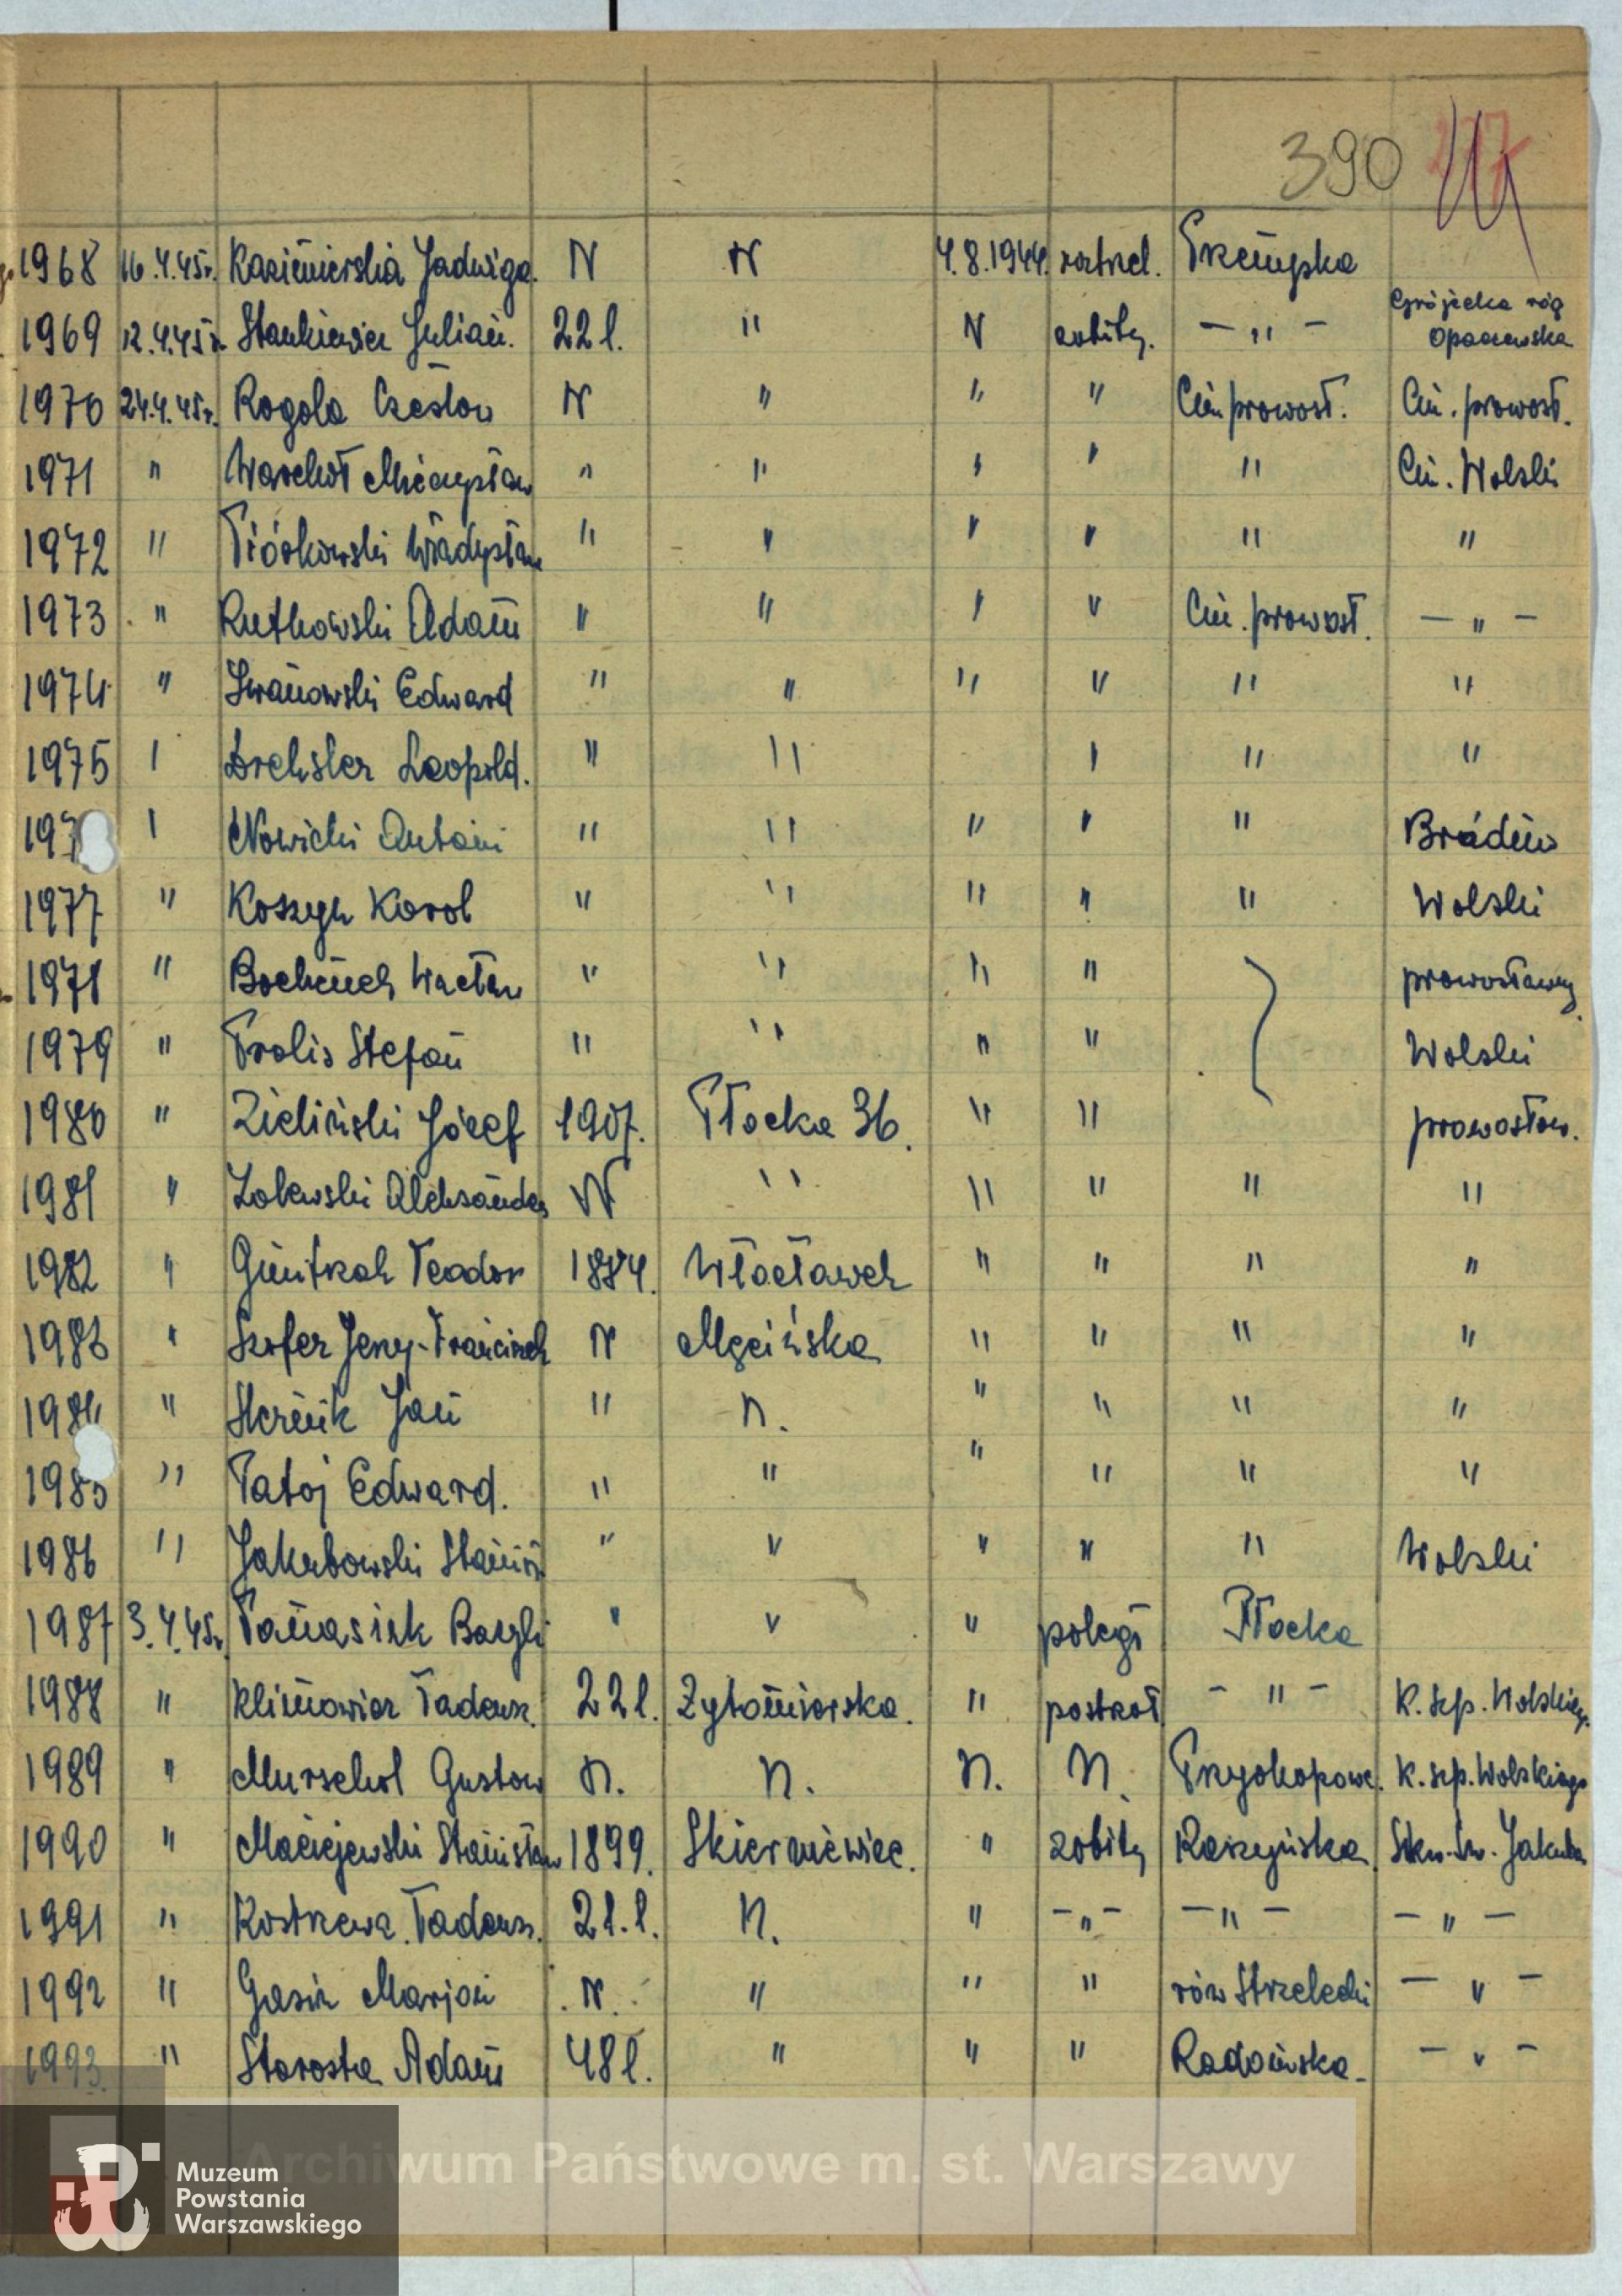 390
1968 16.4.45r. Kazimierska Jadwiga. N N 4.8.1944. roztrzel. Przemyska
1969 12.4.45r. Stankiewicz Julian. 22 l. " N zabity. — " — Grójecka róg Opaczewska
1970 24.4.45r. Rogola Czesław N " " " Cm. prawosł. Cm. prawosł.
1971 " Warchoł Mieczysław " " " " " Cm. Wolski
1972 " Piórkowski Władysław " " " " " "
1973 " Rutkowski Adam " " " " Cm. prawosł. — " —
1974 " Iwanowski Edward " " " " " "
1975 " Drehsler Leopold. " " " " "
197 " Nowicki Antoni " " " " " Bródno
1977 " Koszyk Karol " " " " " Wolski
1978 " Bochenek Wacław " " " " prawosławny
1979 " Prolis Stefan " " " " Wolski
1980 " Zieliński Józef 1907. Płocka 36. " " prawosław.
1981 " Zalewski Aleksander N " " " " "
1982 " Teodor 1884. Włocławek " " " "
1983 " Szofer Jerzy-Franciszek N Mgcińska " " " "
1984 " Jan " n. " " " "
1985 " Tatoj Edward. " " " " " "
1986 " Jakubowski Stanisł " " " " " Wolski
1987 3.4.45r. Bazyli " " " poległ Płocka
1988 " Klimowicz Tadeusz. 22 l. Żytomiorska. " postrzał — " — K. szp. Wolskieg.
1989 " Murschol Gustaw n. n. n. n. Przyokopowa. K. szp. Wolskiego
1990 " Maciejewski Stanisław 1899. Skierniewice. " zabity Raszyńska Skw. Św. Jakuba
1991 " Kostrzewa Tadeusz. 21. l. n. " — " — — " — — " —
1992 " Marjan N. " " " rów Strzelecki — " —
1993. " Starosta Adam 48 l. " " " Radomska — " —
Archiwum Państwowe m. st. Warszawy
Muzeum
Powstania
Warszawskiego